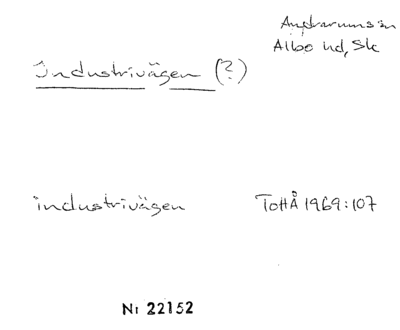 Andrarums sn
Albo hd, Sk
Industrivägen (?)
industrivägen TOHÅ 1969:107
Nr 22152